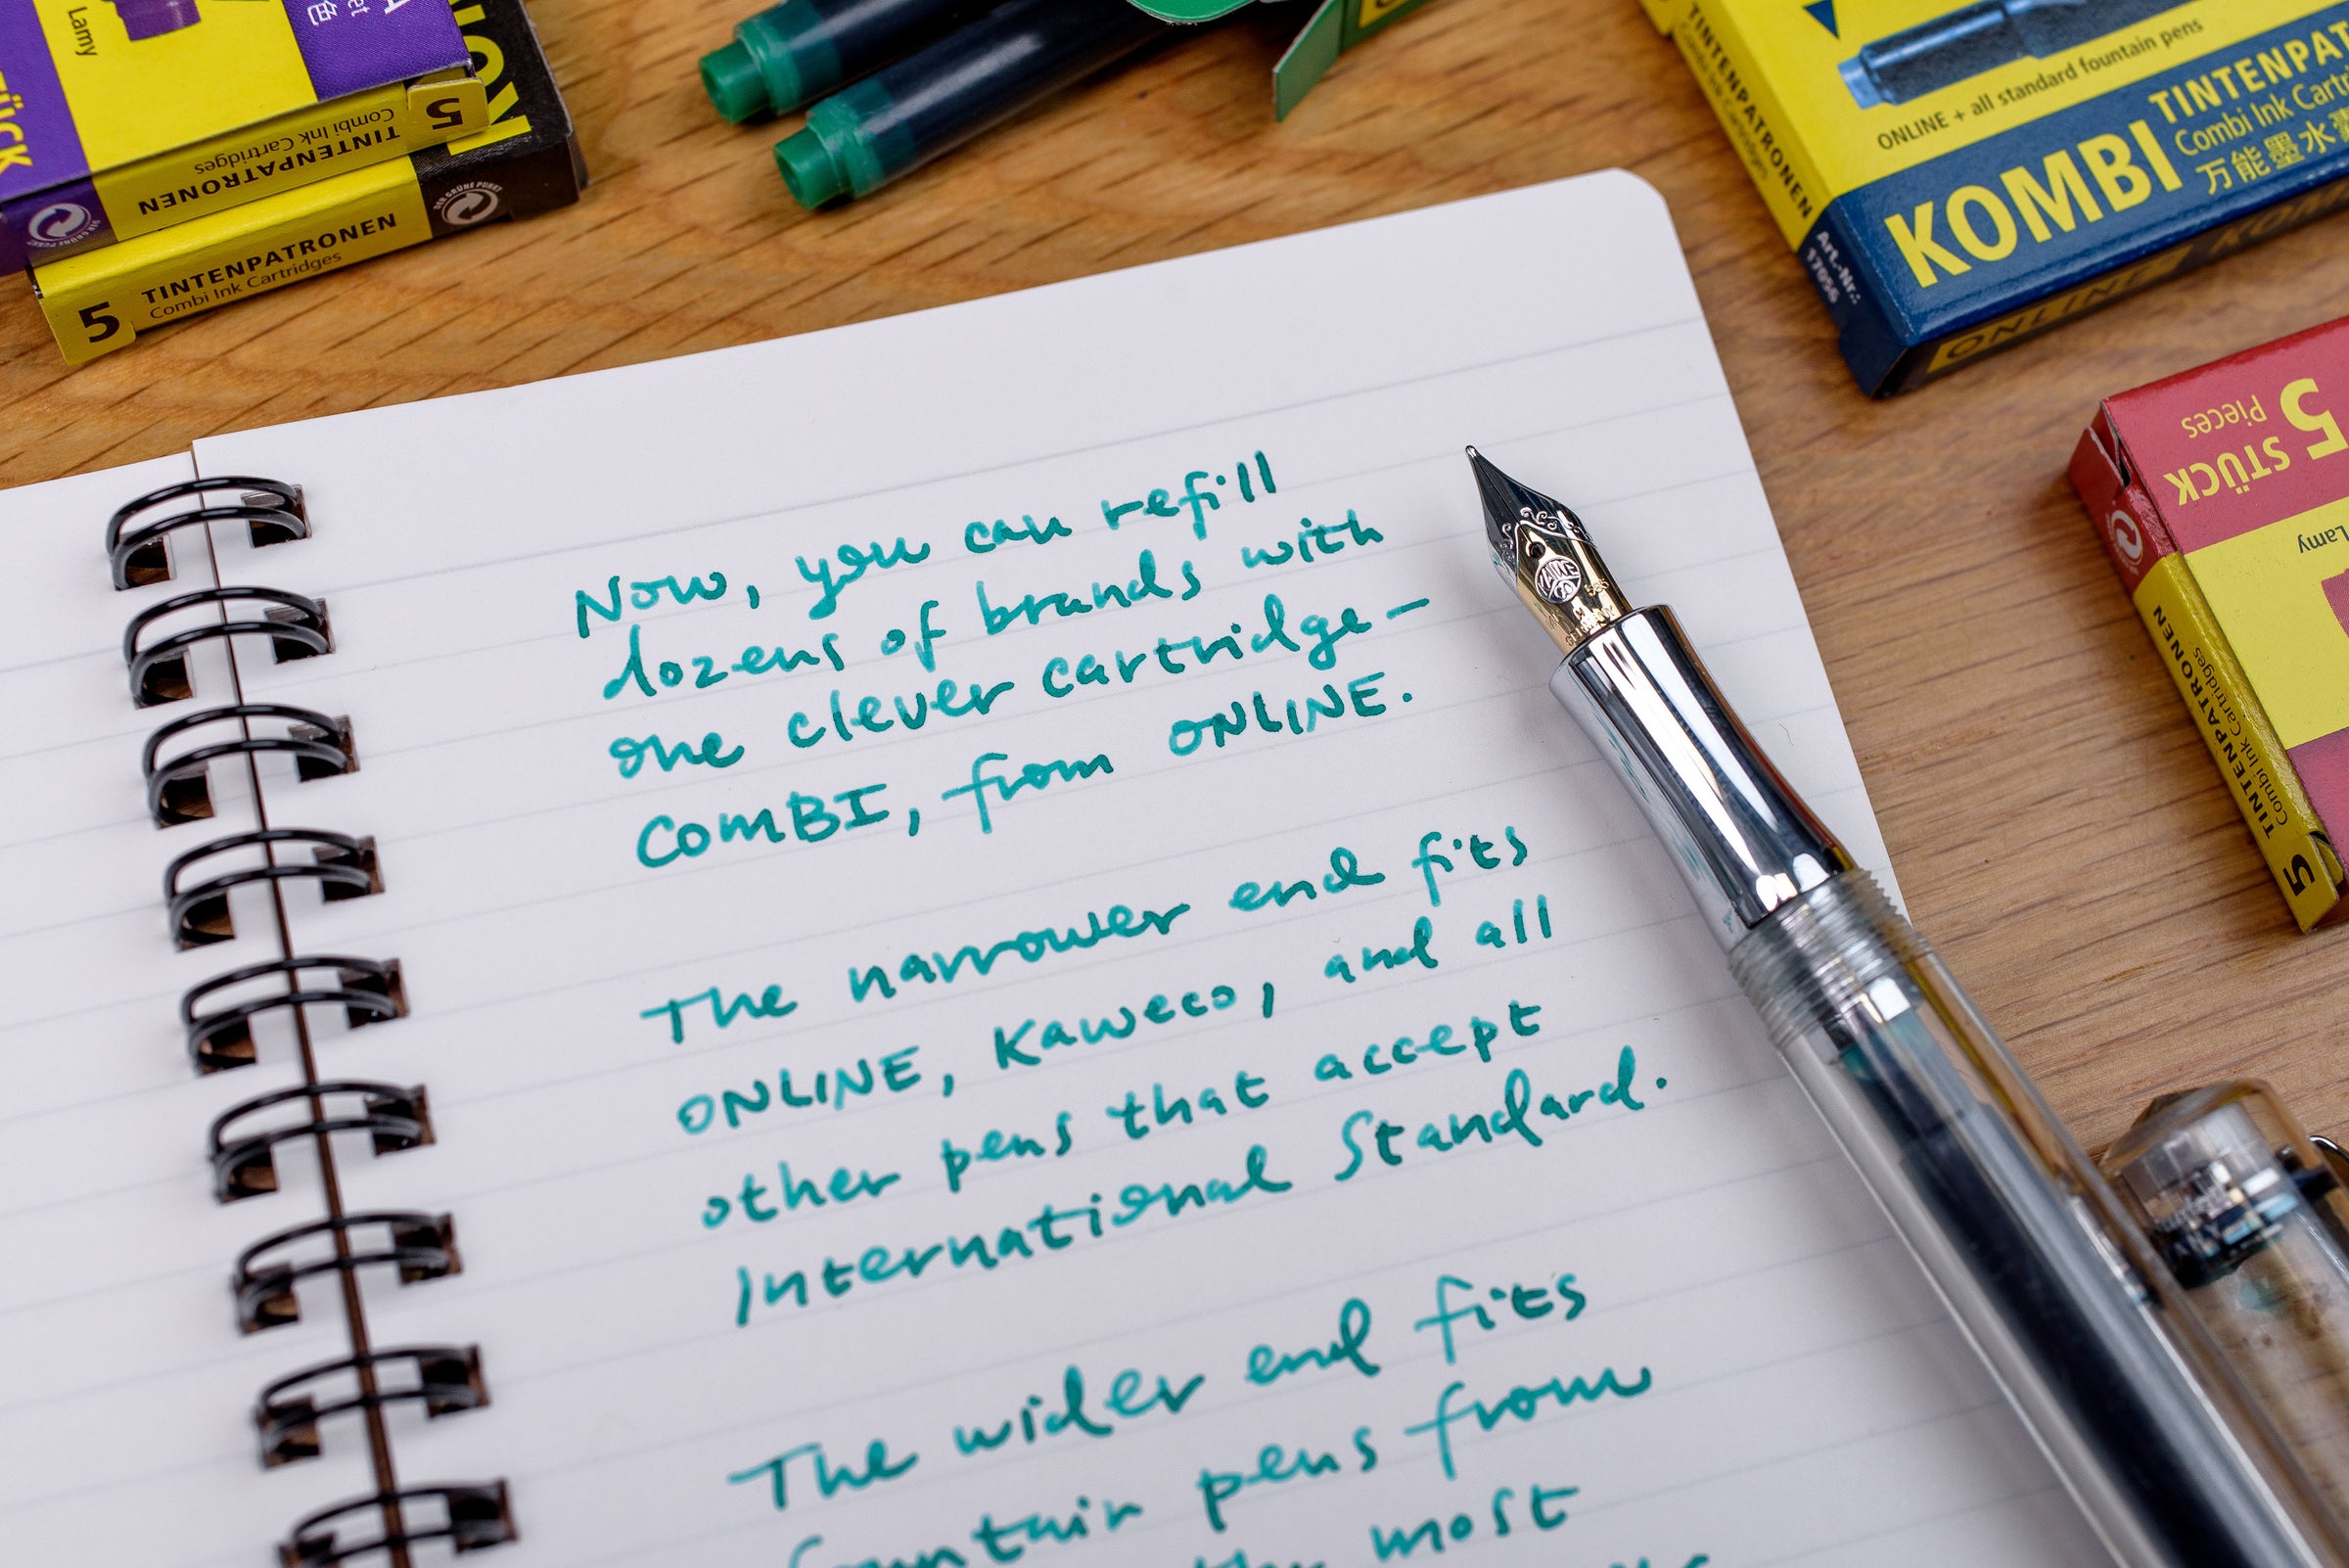 Lamy
STÜCK
5
TINTENPATRONEN
Combi Ink Cartridges
DER GRÜNE PUNKT
5
TINTENPATRONEN
Combi Ink Cartridges
TINTENPATRONEN
ONLINE + all standard fountain pens
KOMBI
TINTENPAT
Combi Ink Cart
万能墨水
Art.-Nr.:
17056
ONLINE
5 STÜCK
Pieces
Lamy
TINTENPATRONEN
Combi Ink Cartridges
5
KAWECO
585
Now, you can refill
dozens of brands with
one clever cartridge—
COMBI, from ONLINE.
The narrower end fits
ONLINE, Kaweco, and all
other pens that accept
International Standard.
The wider end fits
fountain pens from
most